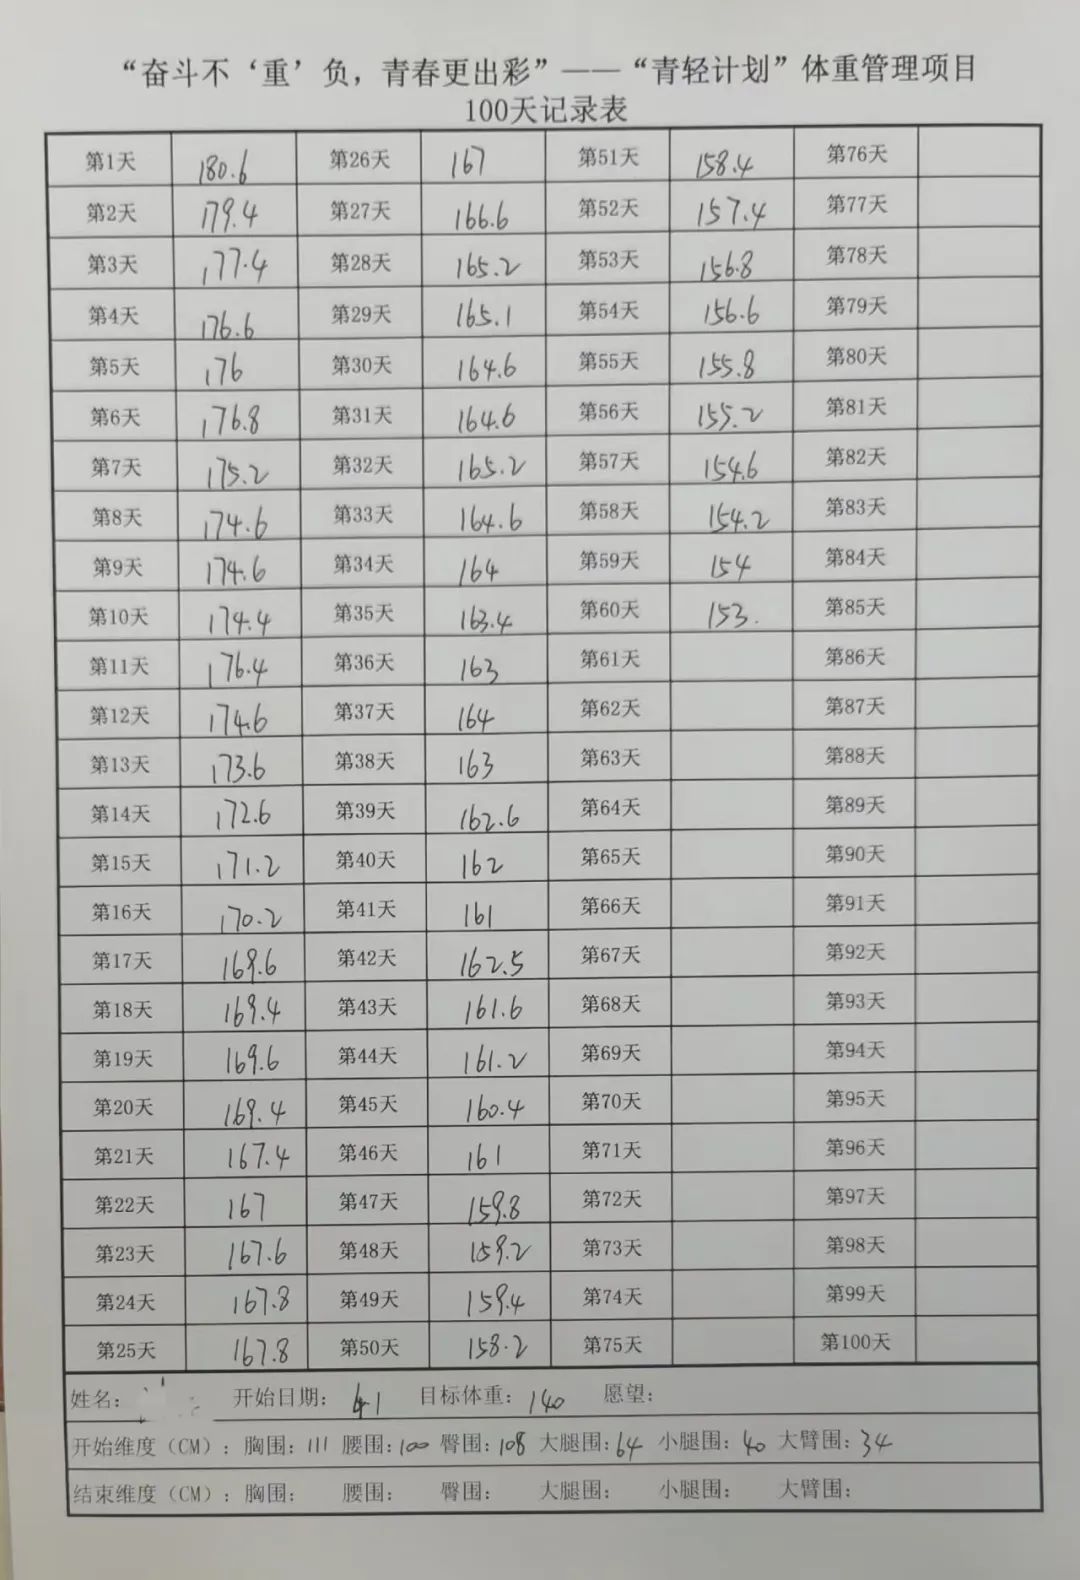 “奋斗不‘重’负，青春更出彩”——“青轻计划”体重管理项目
100天记录表
第1天 180.6 第26天 167 第51天 158.4 第76天
第2天 179.4 第27天 166.6 第52天 157.4 第77天
第3天 177.4 第28天 165.2 第53天 156.8 第78天
第4天 176.6 第29天 165.1 第54天 156.6 第79天
第5天 176 第30天 164.6 第55天 155.8 第80天
第6天 176.8 第31天 164.6 第56天 155.2 第81天
第7天 175.2 第32天 165.2 第57天 154.6 第82天
第8天 174.6 第33天 164.6 第58天 154.2 第83天
第9天 174.6 第34天 164 第59天 154 第84天
第10天 174.4 第35天 163.4 第60天 153. 第85天
第11天 176.4 第36天 163 第61天 第86天
第12天 174.6 第37天 164 第62天 第87天
第13天 173.6 第38天 163 第63天 第88天
第14天 172.6 第39天 162.6 第64天 第89天
第15天 171.2 第40天 162 第65天 第90天
第16天 170.2 第41天 161 第66天 第91天
第17天 169.6 第42天 162.5 第67天 第92天
第18天 169.4 第43天 161.6 第68天 第93天
第19天 169.6 第44天 161.2 第69天 第94天
第20天 169.4 第45天 160.4 第70天 第95天
第21天 167.4 第46天 161 第71天 第96天
第22天 167 第47天 159.8 第72天 第97天
第23天 167.6 第48天 159.2 第73天 第98天
第24天 167.8 第49天 159.4 第74天 第99天
第25天 167.8 第50天 158.2 第75天 第100天
姓名： 开始日期： 4.1 目标体重：140 愿望：
开始维度（CM）：胸围：111 腰围：100 臀围：108 大腿围：64 小腿围：40 大臂围：34
结束维度（CM）：胸围： 腰围： 臀围： 大腿围： 小腿围： 大臂围：